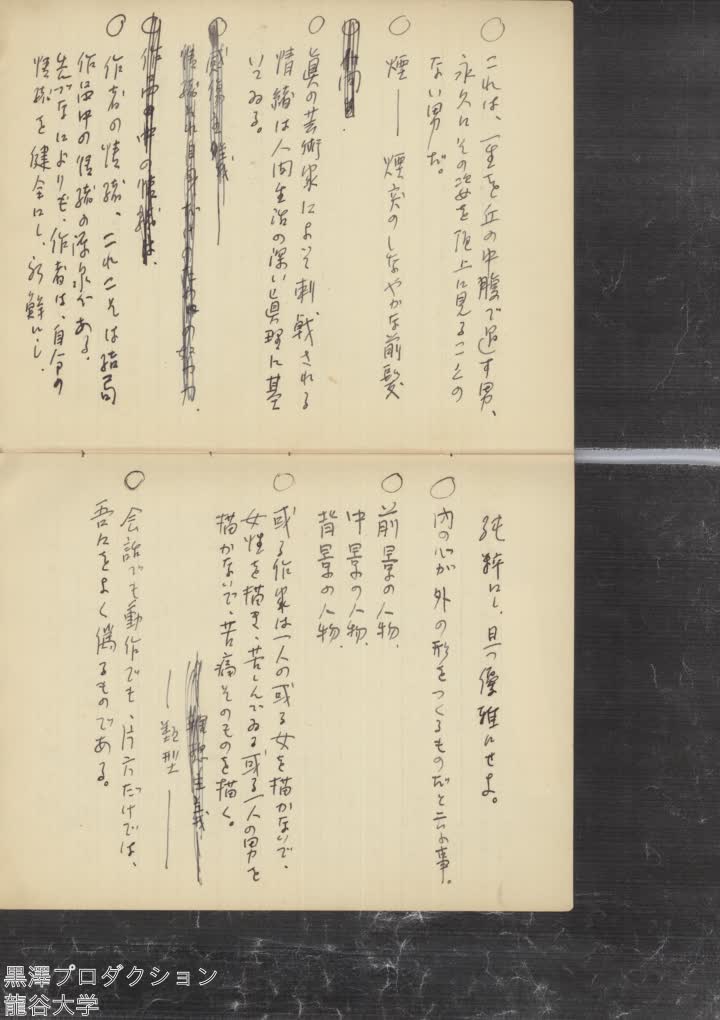 ○ これは、一生を丘の中腹で過す男、
永久にその姿を頂上に見ることの
ない男だ。
○ 煙── 煙突のしなやかな前髪
○ 眞の芸術家によって刺戟される
情緒は人間生活の深い眞理に基
いてゐる。
○ 感傷主義
情緒それ自身だけのための努力.
○ 作品の中の情緒は、
○ 作者の情緒、これこそは結局
作品中の情緒の源泉である。
先づなによりも、作者は、自分の
情緒を健全にし、新鮮にし、
純粋にし、且つ優雅にせよ。
○ 内の心が外の形をつくるものだと云ふ事。
○ 前景の人物.
中景の人物.
背景の人物.
○ 或る作家は一人の或る女を描かないで、
女性を描き、苦しんでゐる或る一人の男を
描かないで、苦痛そのものを描く。
─ 類型 ─
○ 会話でも動作でも、片方だけでは、
吾々をよく偽るものである。
黒澤プロダクション
龍谷大学